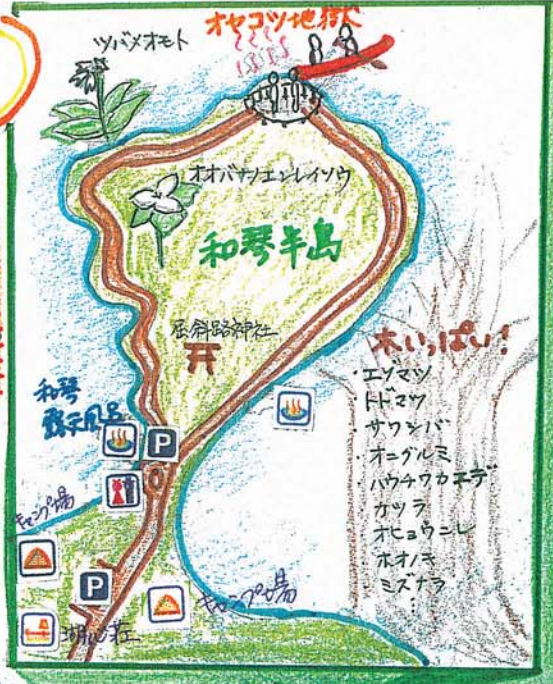 オヤコツ地獄
ツバメオモト
オオバナノエンレイソウ
和琴半島
屈斜路神社
和琴
露天風呂
P
キャンプ場
P
湖心荘
キャンプ場
木いっぱい!
・エゾマツ
・トドマツ
・サワシバ
・オニグルミ
・ハウチワカエデ
・カツラ
・オヒョウニレ
・ホオノキ
・ミズナラ